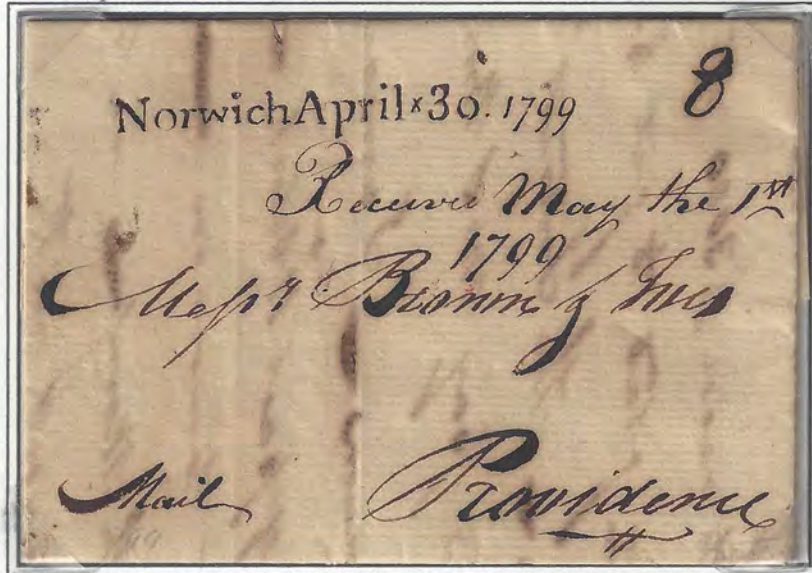 Norwich April × 30. 1799
8
Received May the 1st
1799
Messrs Brown & Ives
Mail
Providence